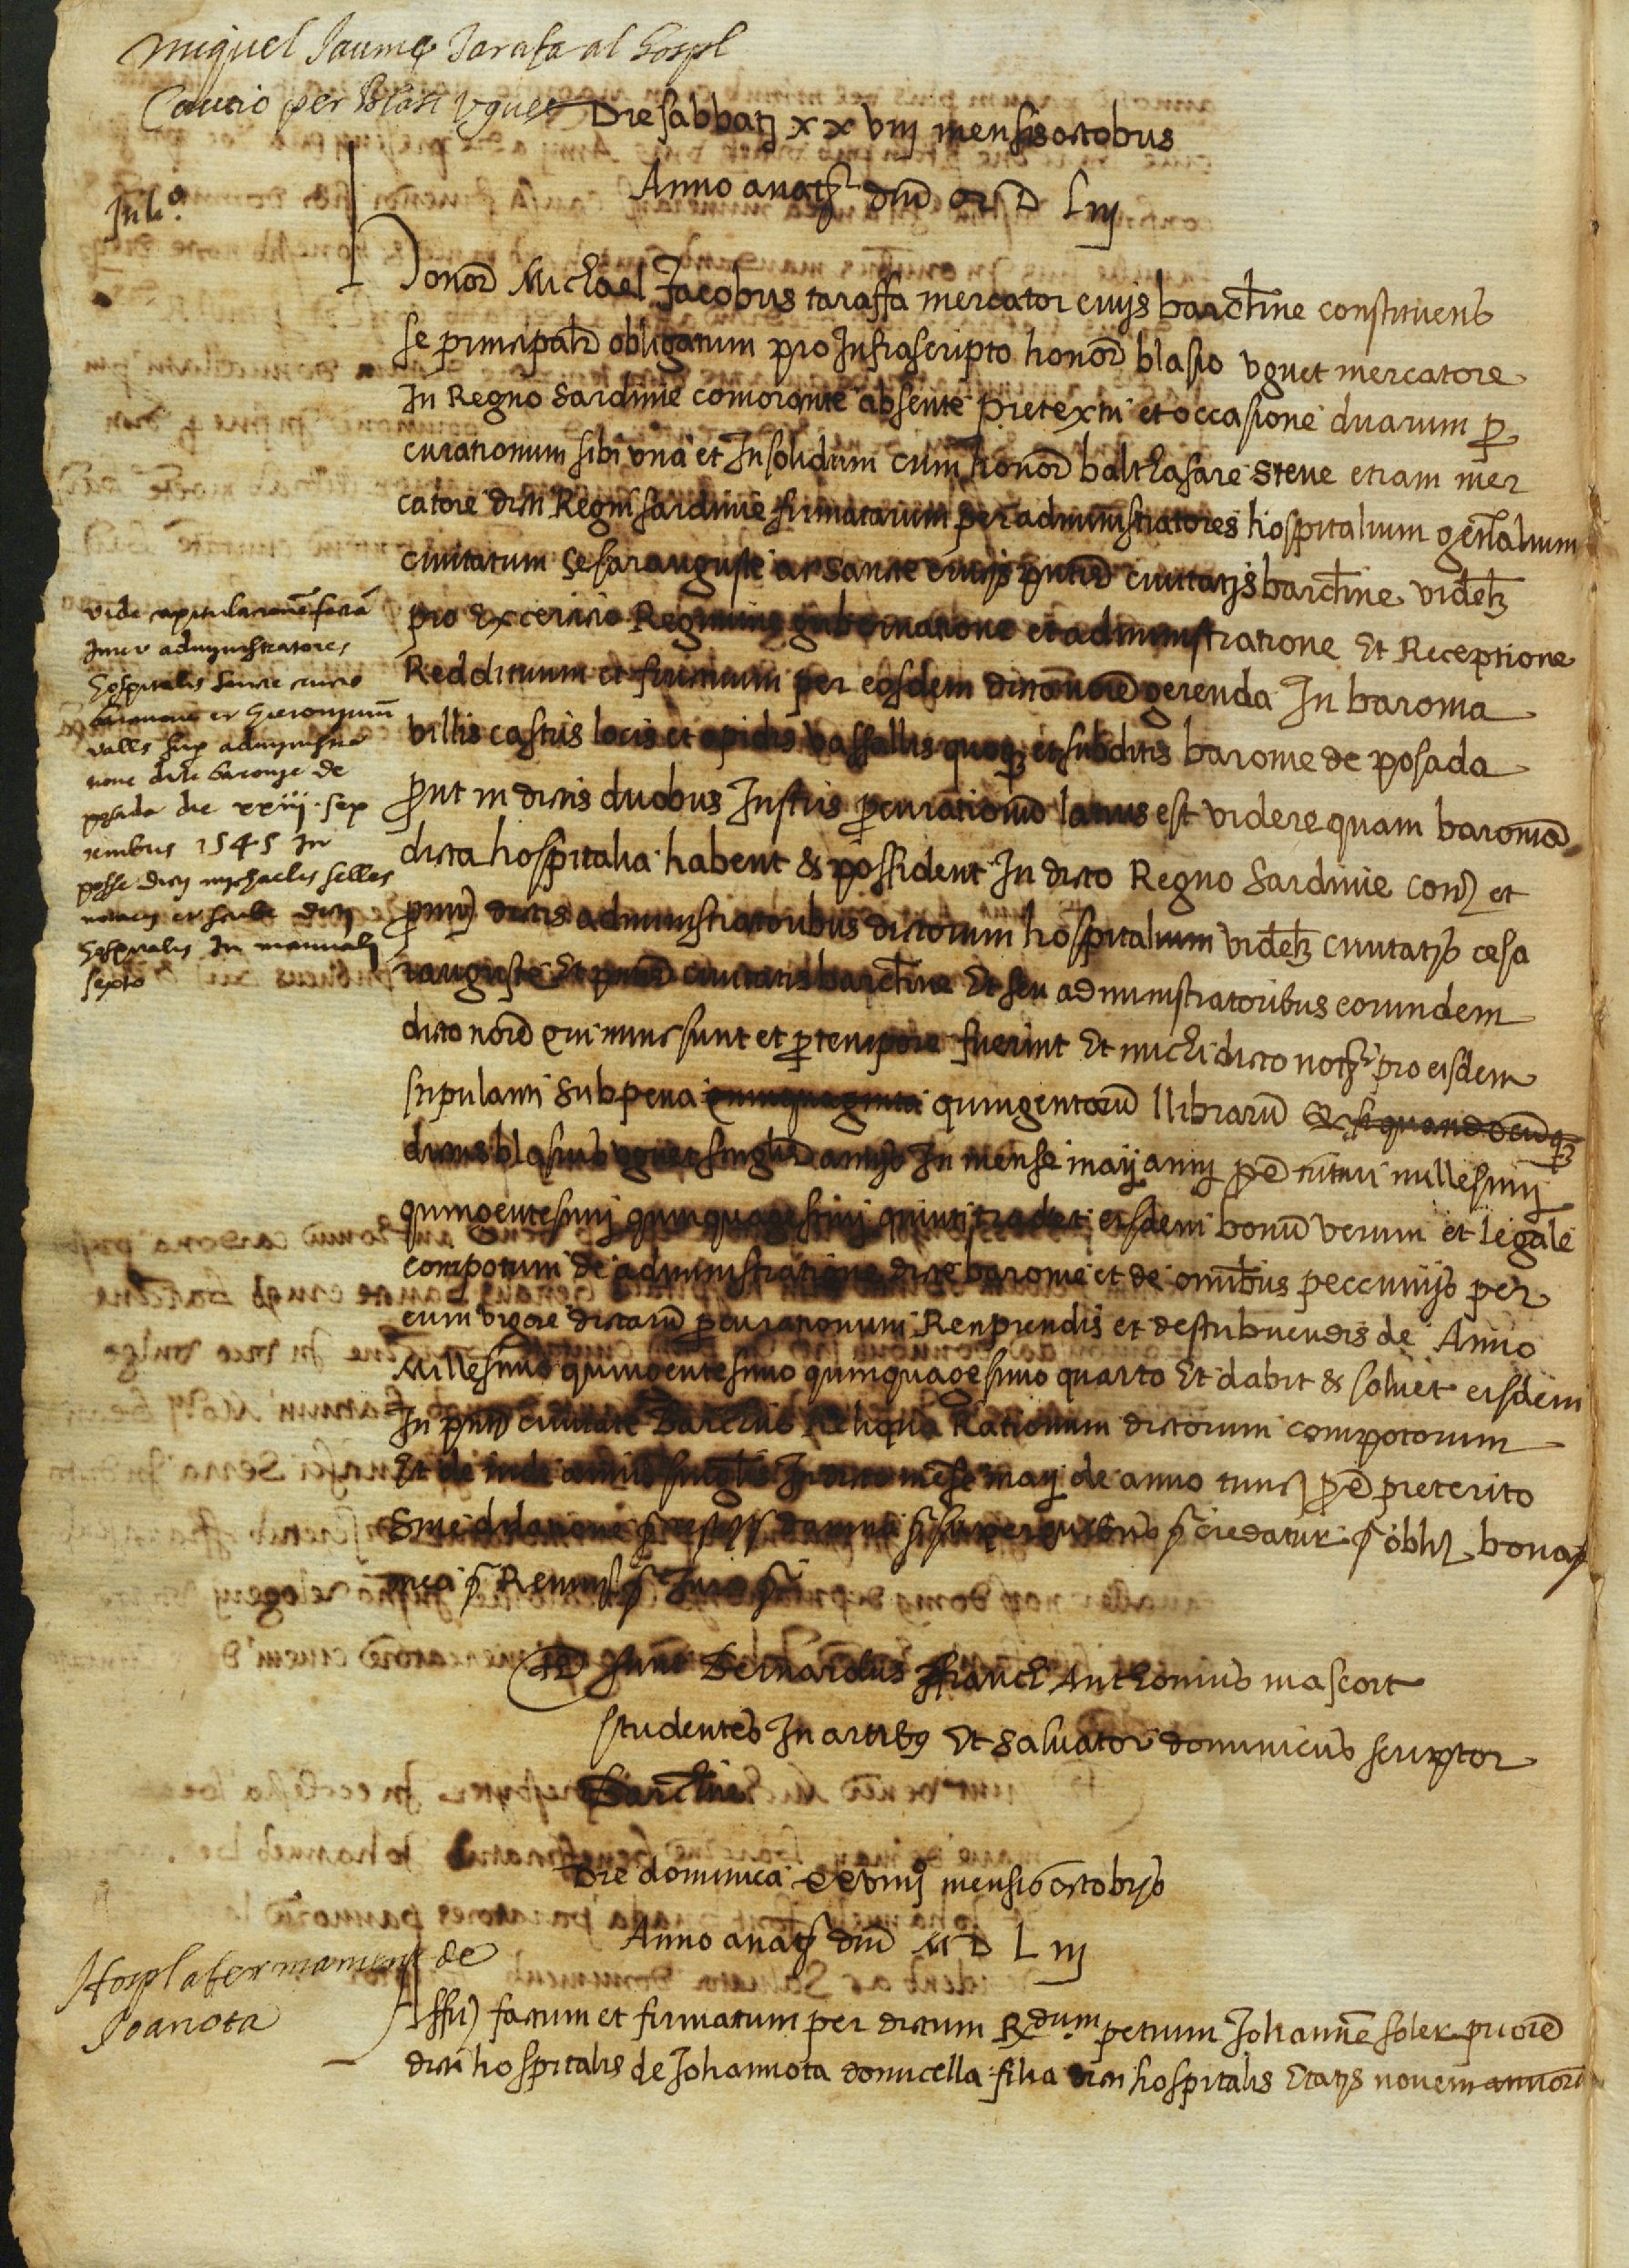 Miquel Jaume Tarafa al Hospl
Cautio per Blasi Uguet
Die sabbatj xxviij mensis octobris
Anno a natte dnj M D Liij
Honor Michael Jacobus taraffa mercator civis barchne constituens
se principalr obligatum pro Infrascripto honor blasio uguet mercatore
In Regno Sardinie comorante absente pretextu et occasione duarum p
curationum sibi una et Insolidum cum honor balthasare Steve etiam mer
catore dicti Regni Sardinie firmatarum per administratores hospitalium genlalium
civitatum Cesarauguste ac Sancte crucis pntis civitatis barchne videtz
pro Excercicio Regimine gubernatione et administratione Et Receptione
Reddituum et fructuum per eosdem dicto nore gerenda In baronia
villis castris locis et opidis vassallis quoqz et subditis baronie de posada
put in dictis duobus Instris pcurationum latius est videre quam baronia
dicta hospitalia habent & possident In dicto Regno Sardinie conv et
pmit dictis administratoribus dictorum hospitalium videtz civitatis cesa
rauguste Et pntis civitatis barchne Et seu administratoribus eorundem
dicto nore qui nunc sunt et p tempore fuerint Et michi dicto notr pro eisdem
stipulanti Sub pena quinquaginta quingentorum llibrarum Et si quandocumqz
dictus blasius uguet singulis annis In mense maij annj pxe futuri millesimj
quingentesimj quinquagesimj quintj tradet eisdem bonum verum et legale
compotum de administratione dicte baronie et de omibus peccunijs per
eum vigore dictarum pcurationum Recipiendis et destribuendis de Anno
Millesimo quingentesimo quinquagesimo quarto Et dabit & solvet eisdem
In pnti civitate Barchne Reliqua Rationum dictorum compotorum
Et de inde annis singlis In dicto mense maij de anno tunc pxe preterito
Sine dilatione & restitt dampna & super quibus & credatur & oblig bona
mea & Renunt & Juro &
Ts sunt Bernardus ffranch Anthonius mascort
studentes In artibus Et Salvator dominicus scriptor
Barchne
Inb.ª
vide capitulacionem factam
Inter administratores
hospitalis sancte crucis
barcinone et Hieronymum
valls sup administra
tione dicte baronje de
posada die xxiij sep
tembris 1545 In
posse dicti mychaelis selles
notarij et scribe dicti
hospitalis In manualj
septo
Die dominica xxviiij mensis octobris
Anno a natte dnj M D Liij
Hospl afermament de
Joanota
Affir factum et firmatum per dictum Rdum petrum Johannem soler priorem
dicti hospitalis de Johannota domicella filia dicti hospitalis Etatis novem annorum